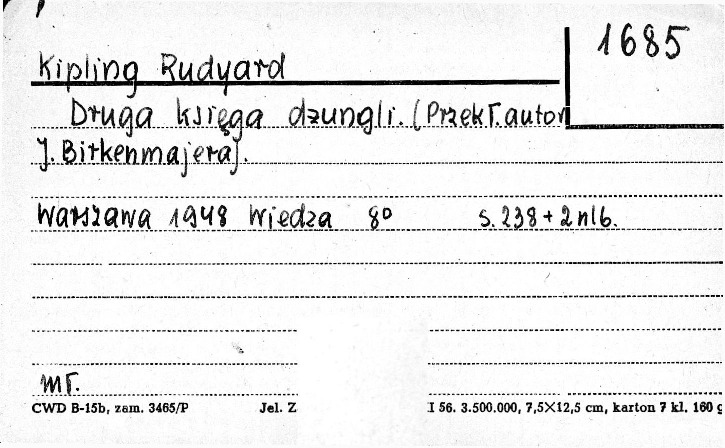 1685
Kipling Rudyard
Druga księga dżungli. (Przekł. autor
J. Birkenmajera).
Warszawa 1948 Wiedza 8° s. 238 + 2 nlb.
mł.
CWD B-15b, zam. 3465/P Jel. Z I 56. 3.500.000, 7,5×12,5 cm, karton 7 kl. 160 g